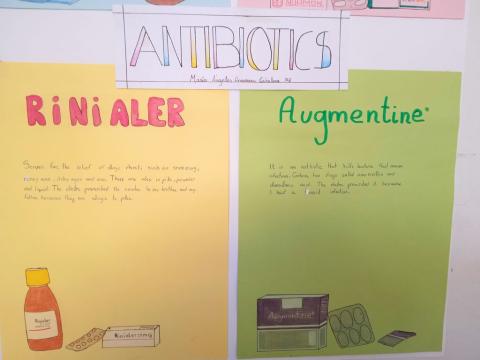 ANTIBIOTICS
María Ángeles
RiNiALER
Serves for the relief of allergy
runny nose, itchy eyes and nose. There are also in pills, powder
and liquid. The doctor prescribed the rinialer to my brother and my
father because they are allergic to
Rinialer
Rinialer 10mg
Augmentine®
It is an antibiotic that kills bacteria that cause
infections. Contains two drugs called amoxicillin and
clavulanic acid. The doctor prescribed it because
I had a infection.
Augmentine®